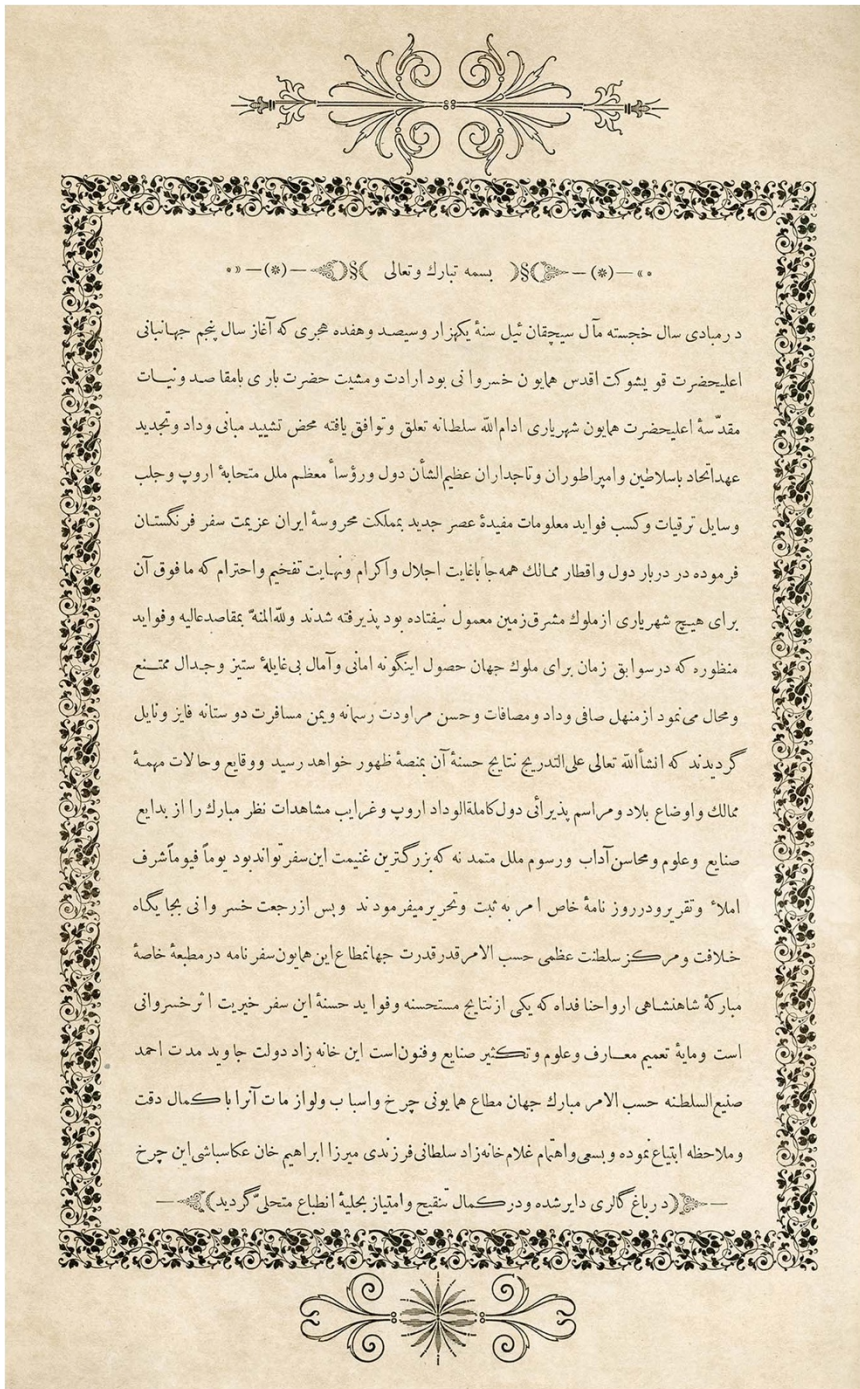 بسمه تبارك وتعالى
درمبادى سال خجسته مآل سيچقان ئيل سنهٔ يكهزار وسيصد وهفده هجرى كه آغاز سال پنجم جهانبانى
اعليحضرت قويشوكت اقدس همايون خسروانى بود ارادت ومشيت حضرت بارى بامقاصد ونيات
مقدّسهٔ اعليحضرت همايون شهريارى ادام‌الله سلطانه تعلق وتوافق يافته محض تشييد مبانى وداد وتجديد
عهداتحاد باسلاطين وامپراطوران وتاجداران عظيم‌الشأن دول ورؤسأ معظم ملل متحابهٔ اروپ وجلب
وسايل ترقيات وكسب فوايد معلومات مفيدهٔ عصر جديد بمملكت محروسهٔ ايران عزيمت سفر فرنگستان
فرموده در دربار دول واقطار ممالك همه‌جا باغايت اجلال واكرام ونهايت تفخيم واحترام كه مافوق آن
براى هيچ شهريارى ازملوك مشرق‌زمين معمول نيفتاده بود پذيرفته شدند ولله‌المنه بمقاصدعاليه وفوايد
منظوره كه درسوابق زمان براى ملوك جهان حصول اينگونه امانى وآمال بى‌غايلهٔ ستيز وجدال ممتنع
ومحال مى‌نمود ازمنهل صافى وداد ومصافات وحسن مراودت رسمانه ويمن مسافرت دوستانه فايز ونايل
گرديدند كه انشأالله تعالى على‌التدريج نتايج حسنهٔ آن بمنصهٔ ظهور خواهد رسيد ووقايع وحالات مهمهٔ
ممالك واوضاع بلاد ومراسم پذيرائى دول‌كاملةالوداد اروپ وغرايب مشاهدات نظر مبارك را از بدايع
صنايع وعلوم ومحاسن‌آداب ورسوم ملل متمدنه كه‌بزرگترين غنيمت اين‌سفرتواندبود يوماً فيوماًشرف
املاء وتقريرودرروزنامهٔ خاص امر به ثبت وتحريرميفرمودند وپس ازرجعت خسروانى بجايگاه
خلافت ومركزسلطنت عظمى حسب الامرقدرقدرت جهانمطاع‌اين‌همايون‌سفرنامه درمطبعهٔ خاصهٔ
مباركهٔ شاهنشاهى ارواحنا فداه كه يكى ازنتايج مستحسنه وفوايد حسنهٔ اين سفر خيريت اثرخسروانى
است ومايهٔ تعميم معارف وعلوم وتكثير صنايع وفنون‌است اين خانه‌زاد دولت جاويد مدت احمد
صنيع‌السلطنه حسب الامر مبارك جهان مطاع همايونى چرخ واسباب ولوازمات آنرا باكمال دقت
وملاحظه ابتياع‌نموده وبسعى‌واهتمام غلام‌خانه‌زاد سلطانى‌فرزندى ميرزا ابراهيم خان عكاسباشى‌اين چرخ
درباغ‌گالرى داير شده ودركمال تنقيح وامتياز بحليهٔ انطباع متحلى‌گرديد